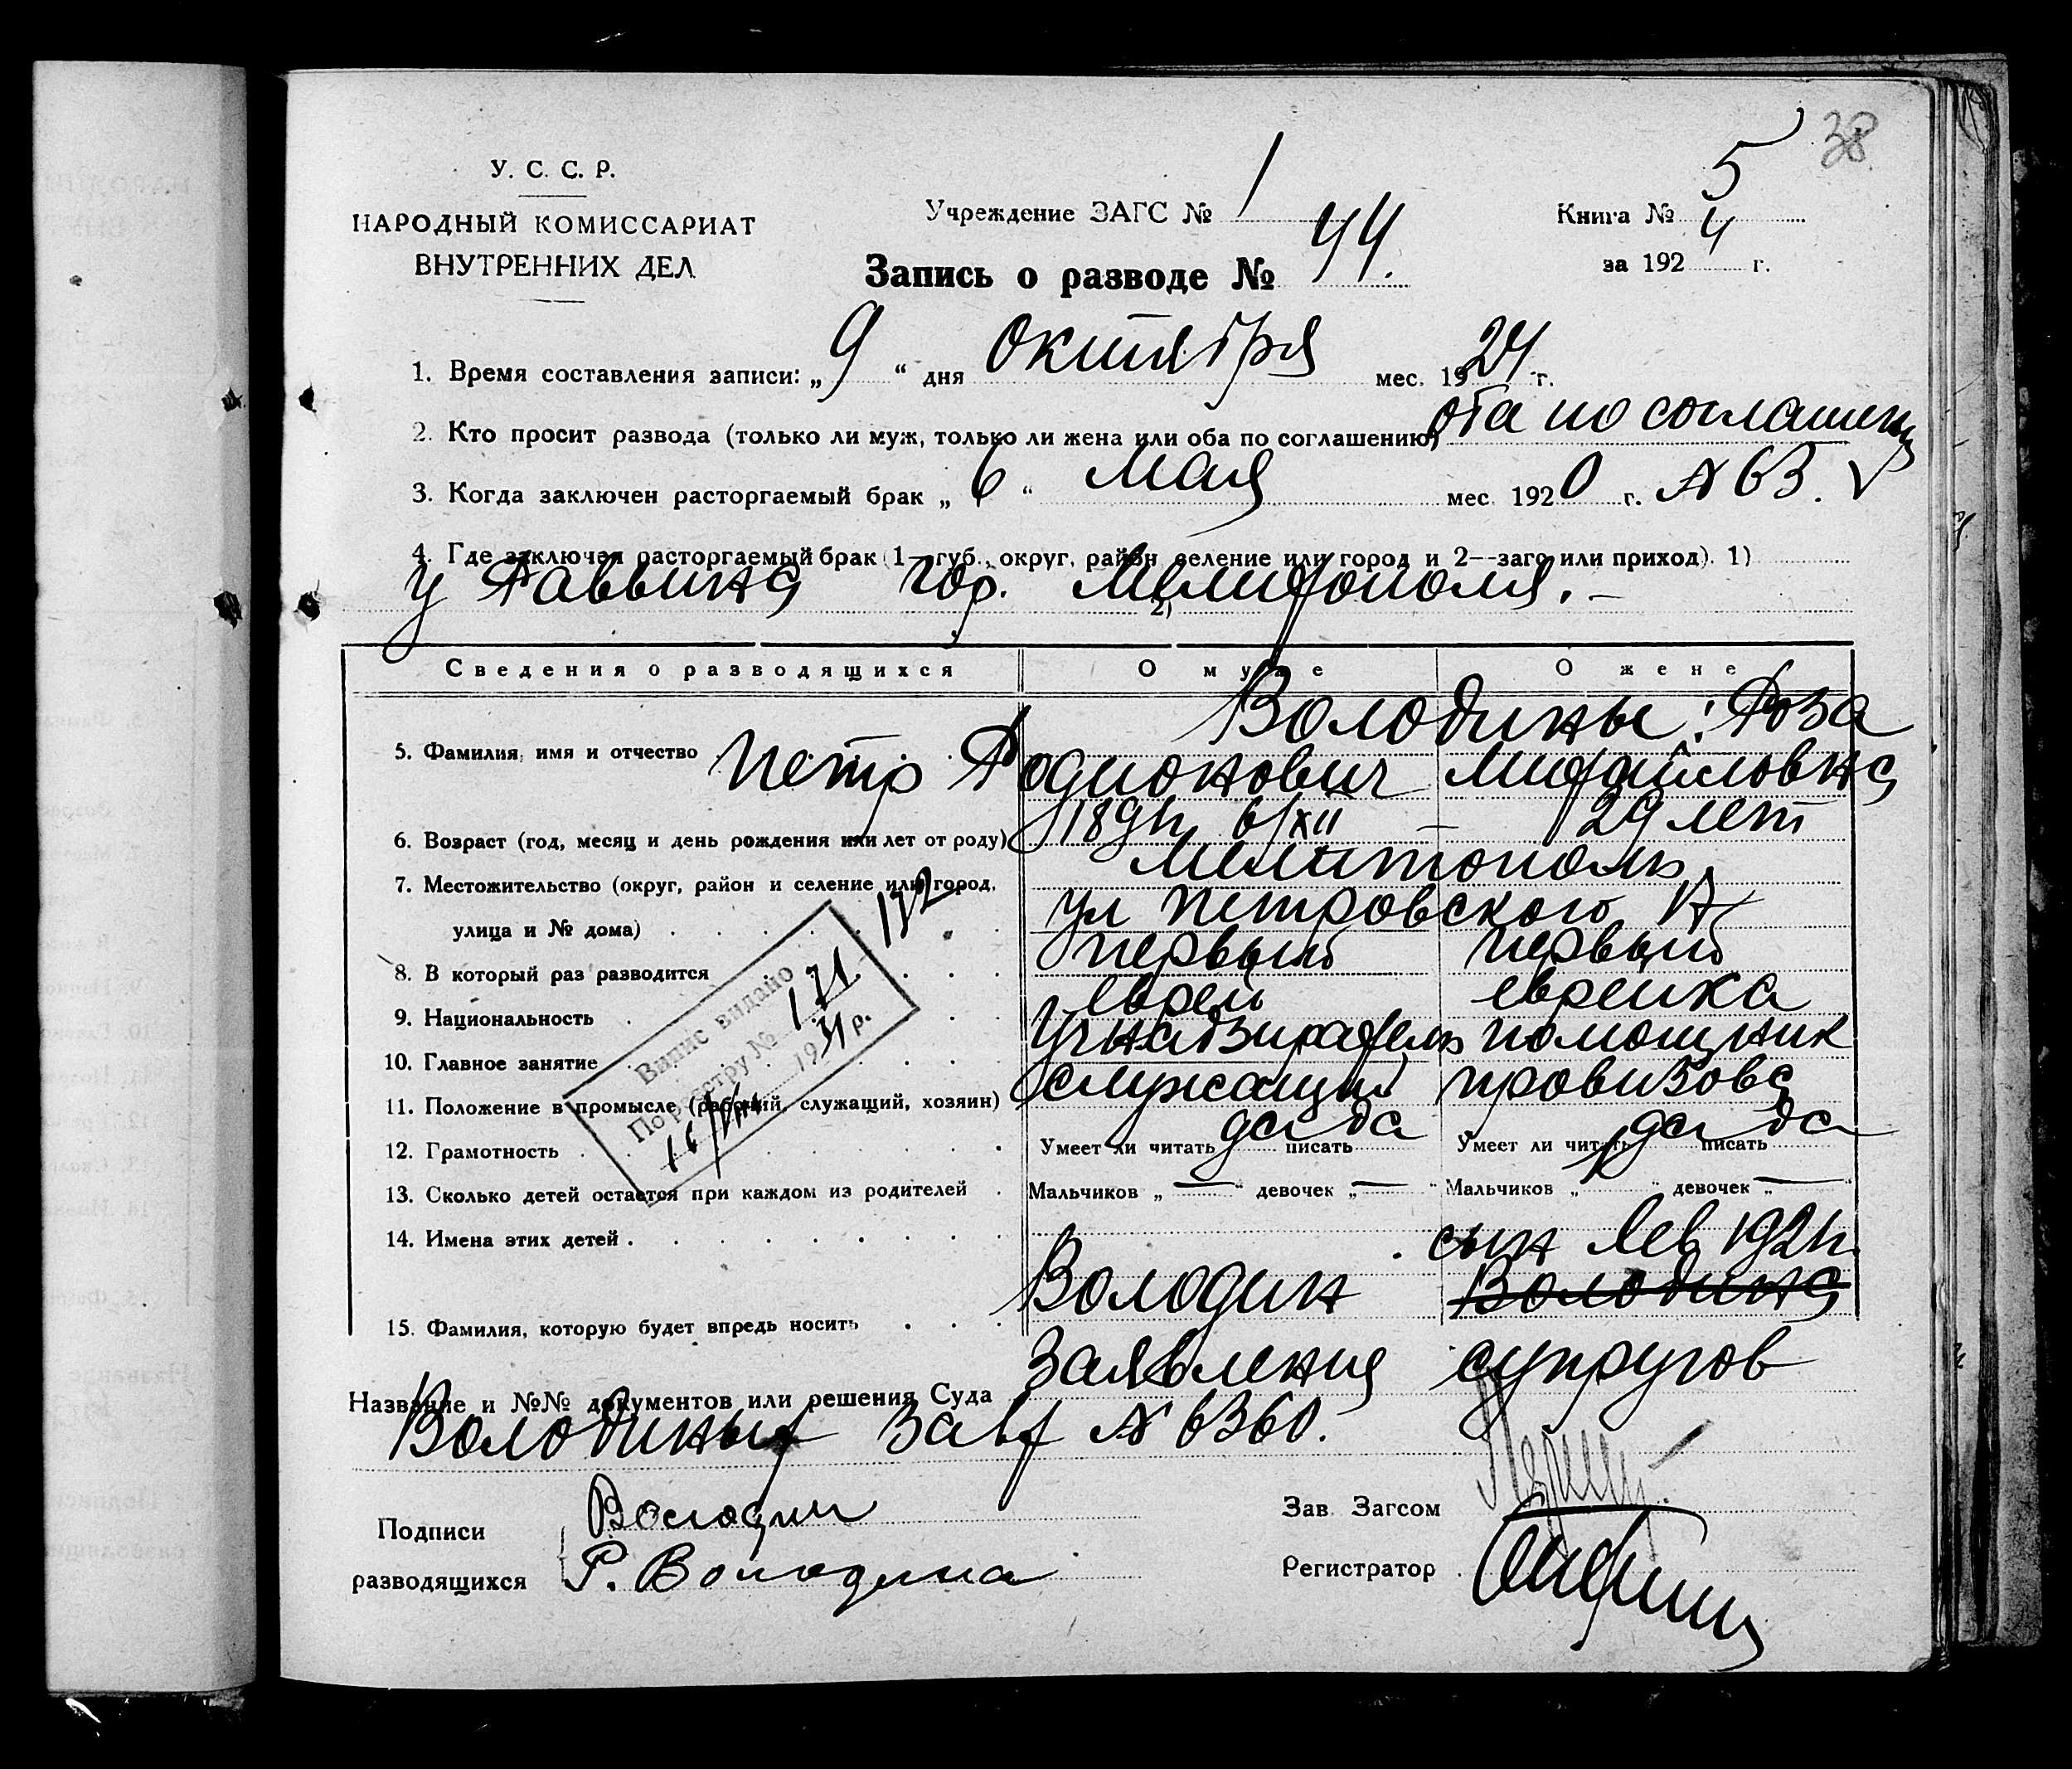 38
У. С. С. Р.
НАРОДНЫЙ КОМИССАРИАТ
ВНУТРЕННИХ ДЕЛ
Учреждение ЗАГС № 1
Книга № 5
за 1924 г.
Запись о разводе № 44.
1. Время составления записи: „9“ дня октября мес. 1924 г.
2. Кто просит развода (только ли муж, только ли жена или оба по соглашению) оба по соглашению
3. Когда заключен расторгаемый брак „6“ мая мес. 1920 г. № 63.
4. Где заключен расторгаемый брак (1—губ., округ, район, селение или город и 2—загс или приход). 1)
у Раввина гор. Мелитополя. 2)
Сведения о разводящихся О муже О жене
Володины: Роза
5. Фамилия, имя и отчество Петр Родионович Михайловна
6. Возраст (год, месяц и день рождения или лет от роду) 6/XII 29 лет
7. Местожительство (округ, район и селение или город, Мелитополь
улица и № дома) ул Петровского
8. В который раз разводится первый первый
9. Национальность еврей еврейка
10. Главное занятие помощник
11. Положение в промысле (рабочий, служащий, хозяин) служащий провизора
12. Грамотность Умеет ли читать да писать да Умеет ли читать да писать да
13. Сколько детей остается при каждом из родителей Мальчиков „—“ девочек „—“ Мальчиков „1“ девочек „—“
14. Имена этих детей сын Лев
15. Фамилия, которую будет впредь носить Володин Володина
Название и №№ документов или решения Суда Заявления супругов
Володиных № 6360.
Подписи
разводящихся
Володин
Р. Володина
Зав. Загсом
Регистратор
Випис видано
По реєстру № 171
1931 р.